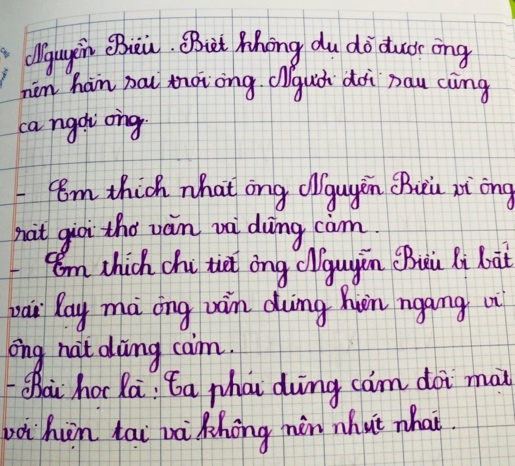 Nguyễn Biểu. Biết không dụ dỗ được ông
nên hắn sai trói ông. Người đời sau cũng
ca ngợi ông.
- Em thích nhất ông Nguyễn Biểu vì ông
rất giỏi thơ văn và dũng cảm.
- Em thích chi tiết ông Nguyễn Biểu bị bắt
vái lạy mà ông vẫn đứng hiên ngang vì
ông rất dũng cảm.
- Bài học là: Ta phải dũng cảm đối mặt
với hiện tại và không nên nhút nhát.